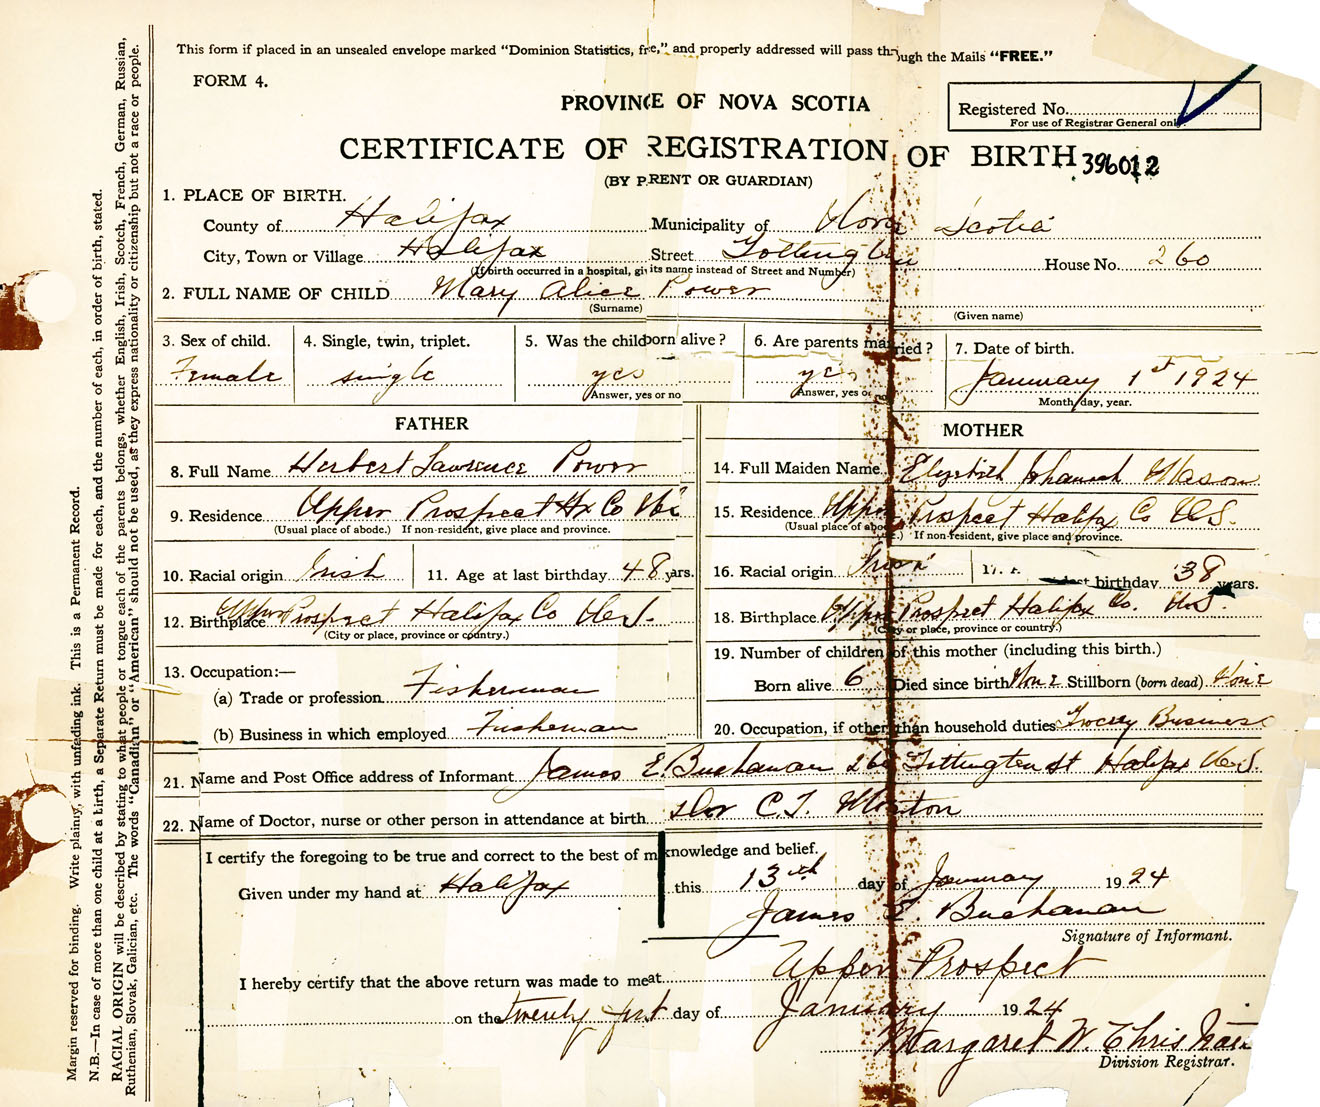 This form if placed in an unsealed envelope marked "Dominion Statistics, free," and properly addressed will pass through the Mails "FREE."
FORM 4.
PROVINCE OF NOVA SCOTIA
Registered No.
For use of Registrar General only.
CERTIFICATE OF REGISTRATION OF BIRTH 396012
(BY PARENT OR GUARDIAN)
1. PLACE OF BIRTH.
County of Halifax Municipality of Nova Scotia
City, Town or Village Halifax Street Tottington House No. 260
(If birth occurred in a hospital, give its name instead of Street and Number)
2. FULL NAME OF CHILD Mary Alice Power
(Surname) (Given name)
3. Sex of child. 4. Single, twin, triplet. 5. Was the child born alive? 6. Are parents married? 7. Date of birth.
Female single yes yes January 1st 1924
Answer, yes or no Answer, yes or no Month, day, year.
FATHER MOTHER
8. Full Name Herbert Lawrence Power 14. Full Maiden Name Elizabeth Mason
9. Residence Upper Prospect Hx Co 15. Residence Upper Prospect Halifax Co N.S.
(Usual place of abode.) If non-resident, give place and province. (Usual place of abode.) If non-resident, give place and province.
10. Racial origin Irish 11. Age at last birthday 48 yrs. 16. Racial origin 17. A last birthday 38 years.
12. Birthplace Upper Prospect Halifax Co N.S. 18. Birthplace Upper Prospect Halifax Co. N.S.
(City or place, province or country.) (City or place, province or country.)
13. Occupation:— 19. Number of children of this mother (including this birth.)
(a) Trade or profession Fisherman Born alive 6 Died since birth None Stillborn (born dead) None
(b) Business in which employed Fisherman 20. Occupation, if other than household duties Grocery Business
21. Name and Post Office address of Informant James E. Buchanan 260 Tottington St Halifax N.S.
22. Name of Doctor, nurse or other person in attendance at birth Dor C.T.
I certify the foregoing to be true and correct to the best of my knowledge and belief.
Given under my hand at Halifax this 13th day of January 1924
James E. Buchanan
Signature of Informant.
I hereby certify that the above return was made to me at Upper Prospect
on the twenty first day of January 1924
Margaret W. Christian
Division Registrar.
Margin reserved for binding. Write plainly, with unfading ink. This is a Permanent Record.
N.B.—In case of more than one child at a birth, a Separate Return must be made for each, and the number of each, in order of birth, stated.
RACIAL ORIGIN will be described by stating to what people or tongue each of the parents belongs, whether English, Irish, Scotch, French, German, Russian,
Ruthenian, Slovak, Galician, etc. The words "Canadian" or "American" should not be used, as they express nationality or citizenship but not a race or people.